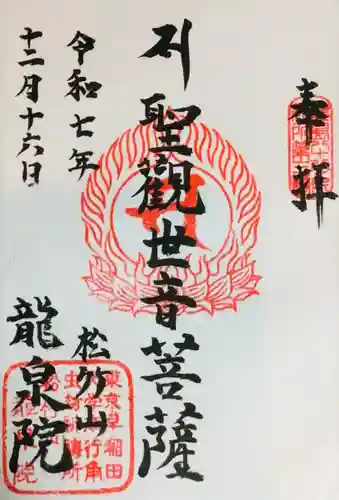 奉拝
聖觀世音菩薩
令和七年
十二月十六日
松竹山
龍泉院